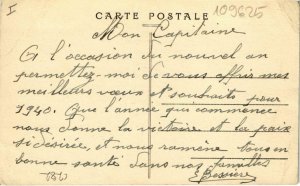 I
CARTE POSTALE
109625
Mon Capitaine
A l'occasion du nouvel an
permettez-moi de vous offrir mes
meilleurs vœux et souhaits pour
1940. Que l'année qui commence
nous donne la victoire et la paix
si désirée, et nous ramène tous en
bonne santé dans nos familles
Bessière